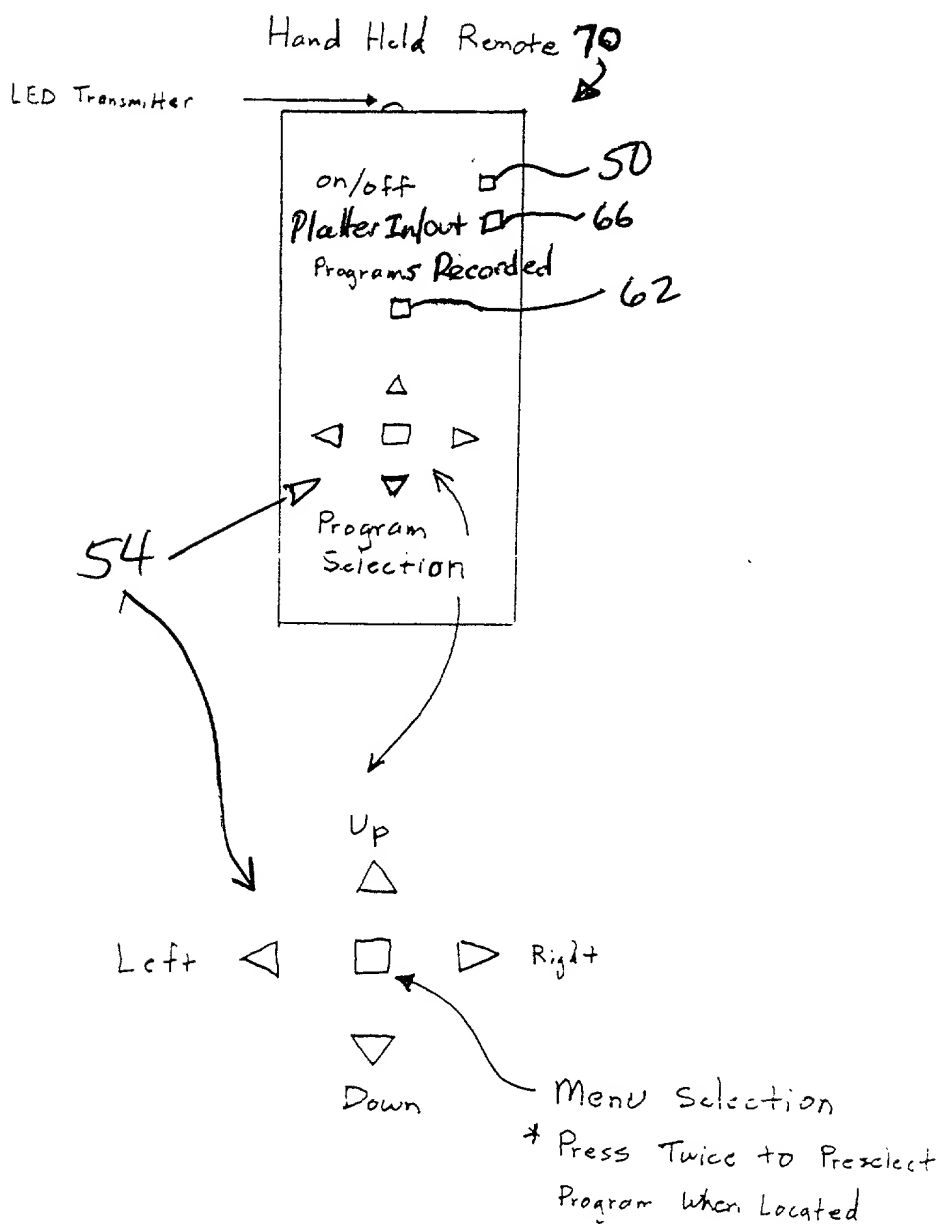 Hand Held Remote 70
LED Transmitter
on/off 50
Platter In/out 66
Programs Recorded
62
Program
Selection
54
Up
Left Right
Down
Menu Selection
* Press Twice to Preselect
Program When Located